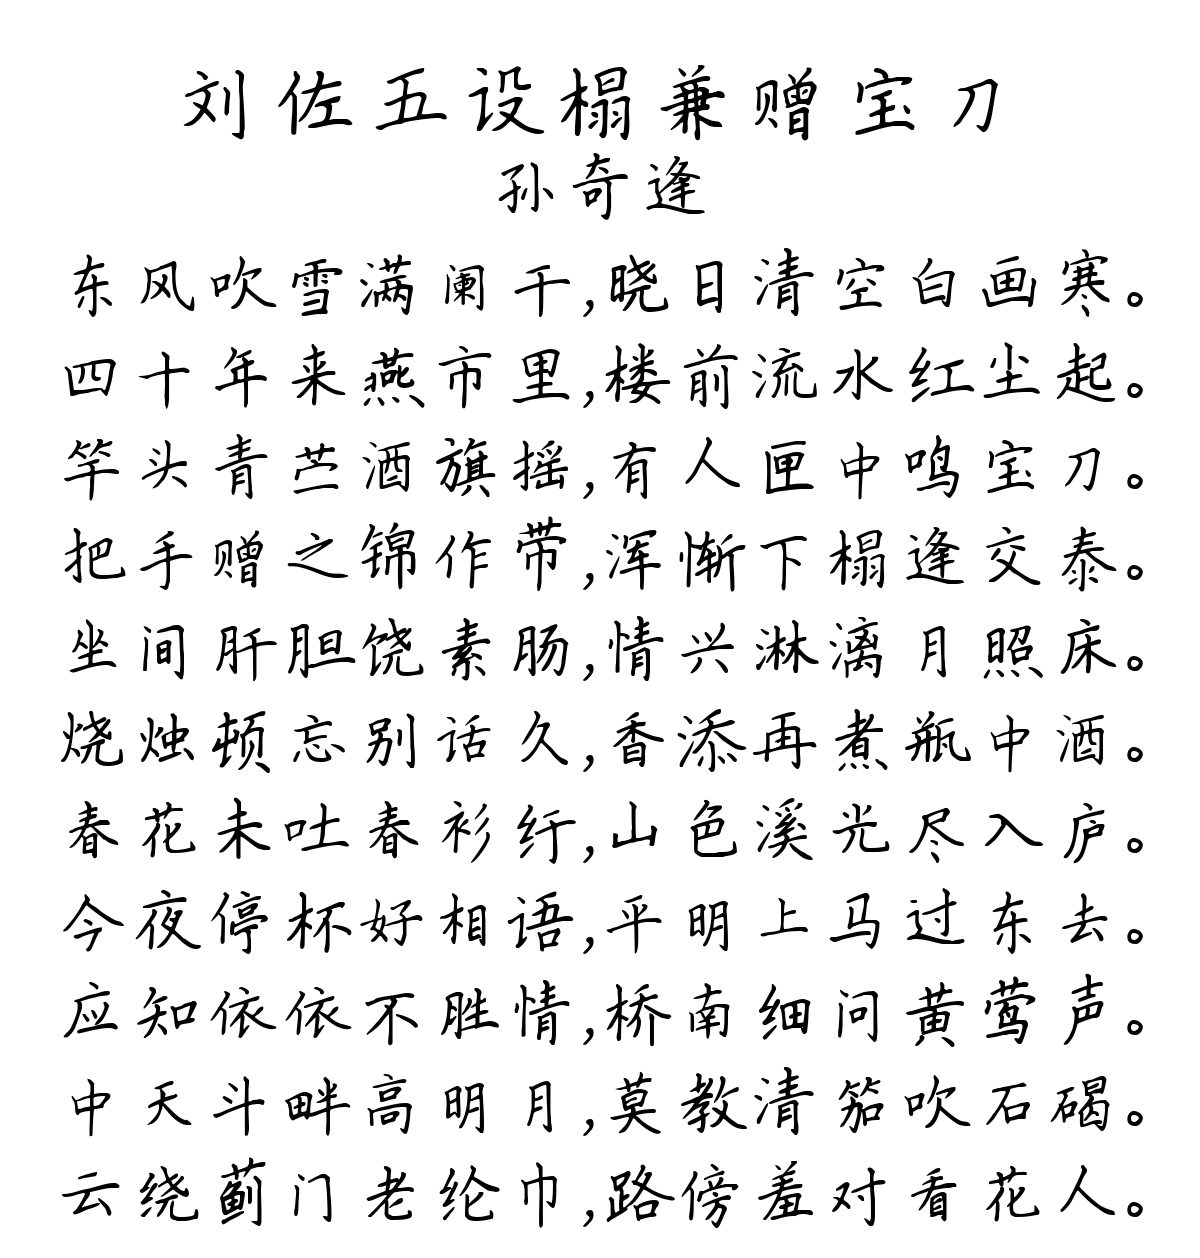 刘佐五设榻兼赠宝刀
孙奇逢
东风吹雪满阑干,晓日清空白画寒。
四十年来燕市里,楼前流水红尘起。
竿头青苎酒旗摇,有人匣中鸣宝刀。
把手赠之锦作带,浑惭下榻逢交泰。
坐间肝胆饶素肠,情兴淋漓月照床。
烧烛顿忘别话久,香添再煮瓶中酒。
春花未吐春衫纡,山色溪光尽入庐。
今夜停杯好相语,平明上马过东去。
应知依依不胜情,桥南细问黄莺声。
中天斗畔高明月,莫教清笳吹石碣。
云绕蓟门老纶巾,路傍羞对看花人。